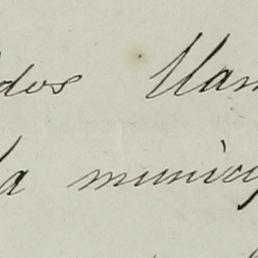 dos llam
la munici